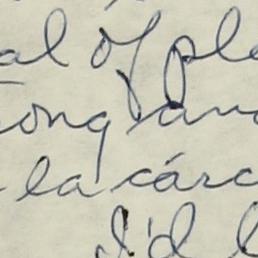 al of pl
ong an
la cárc
I'd l